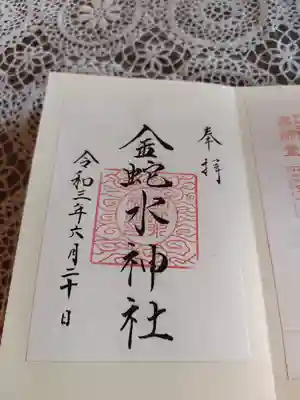 奉拝
金蛇水神社
令和三年六月二十日